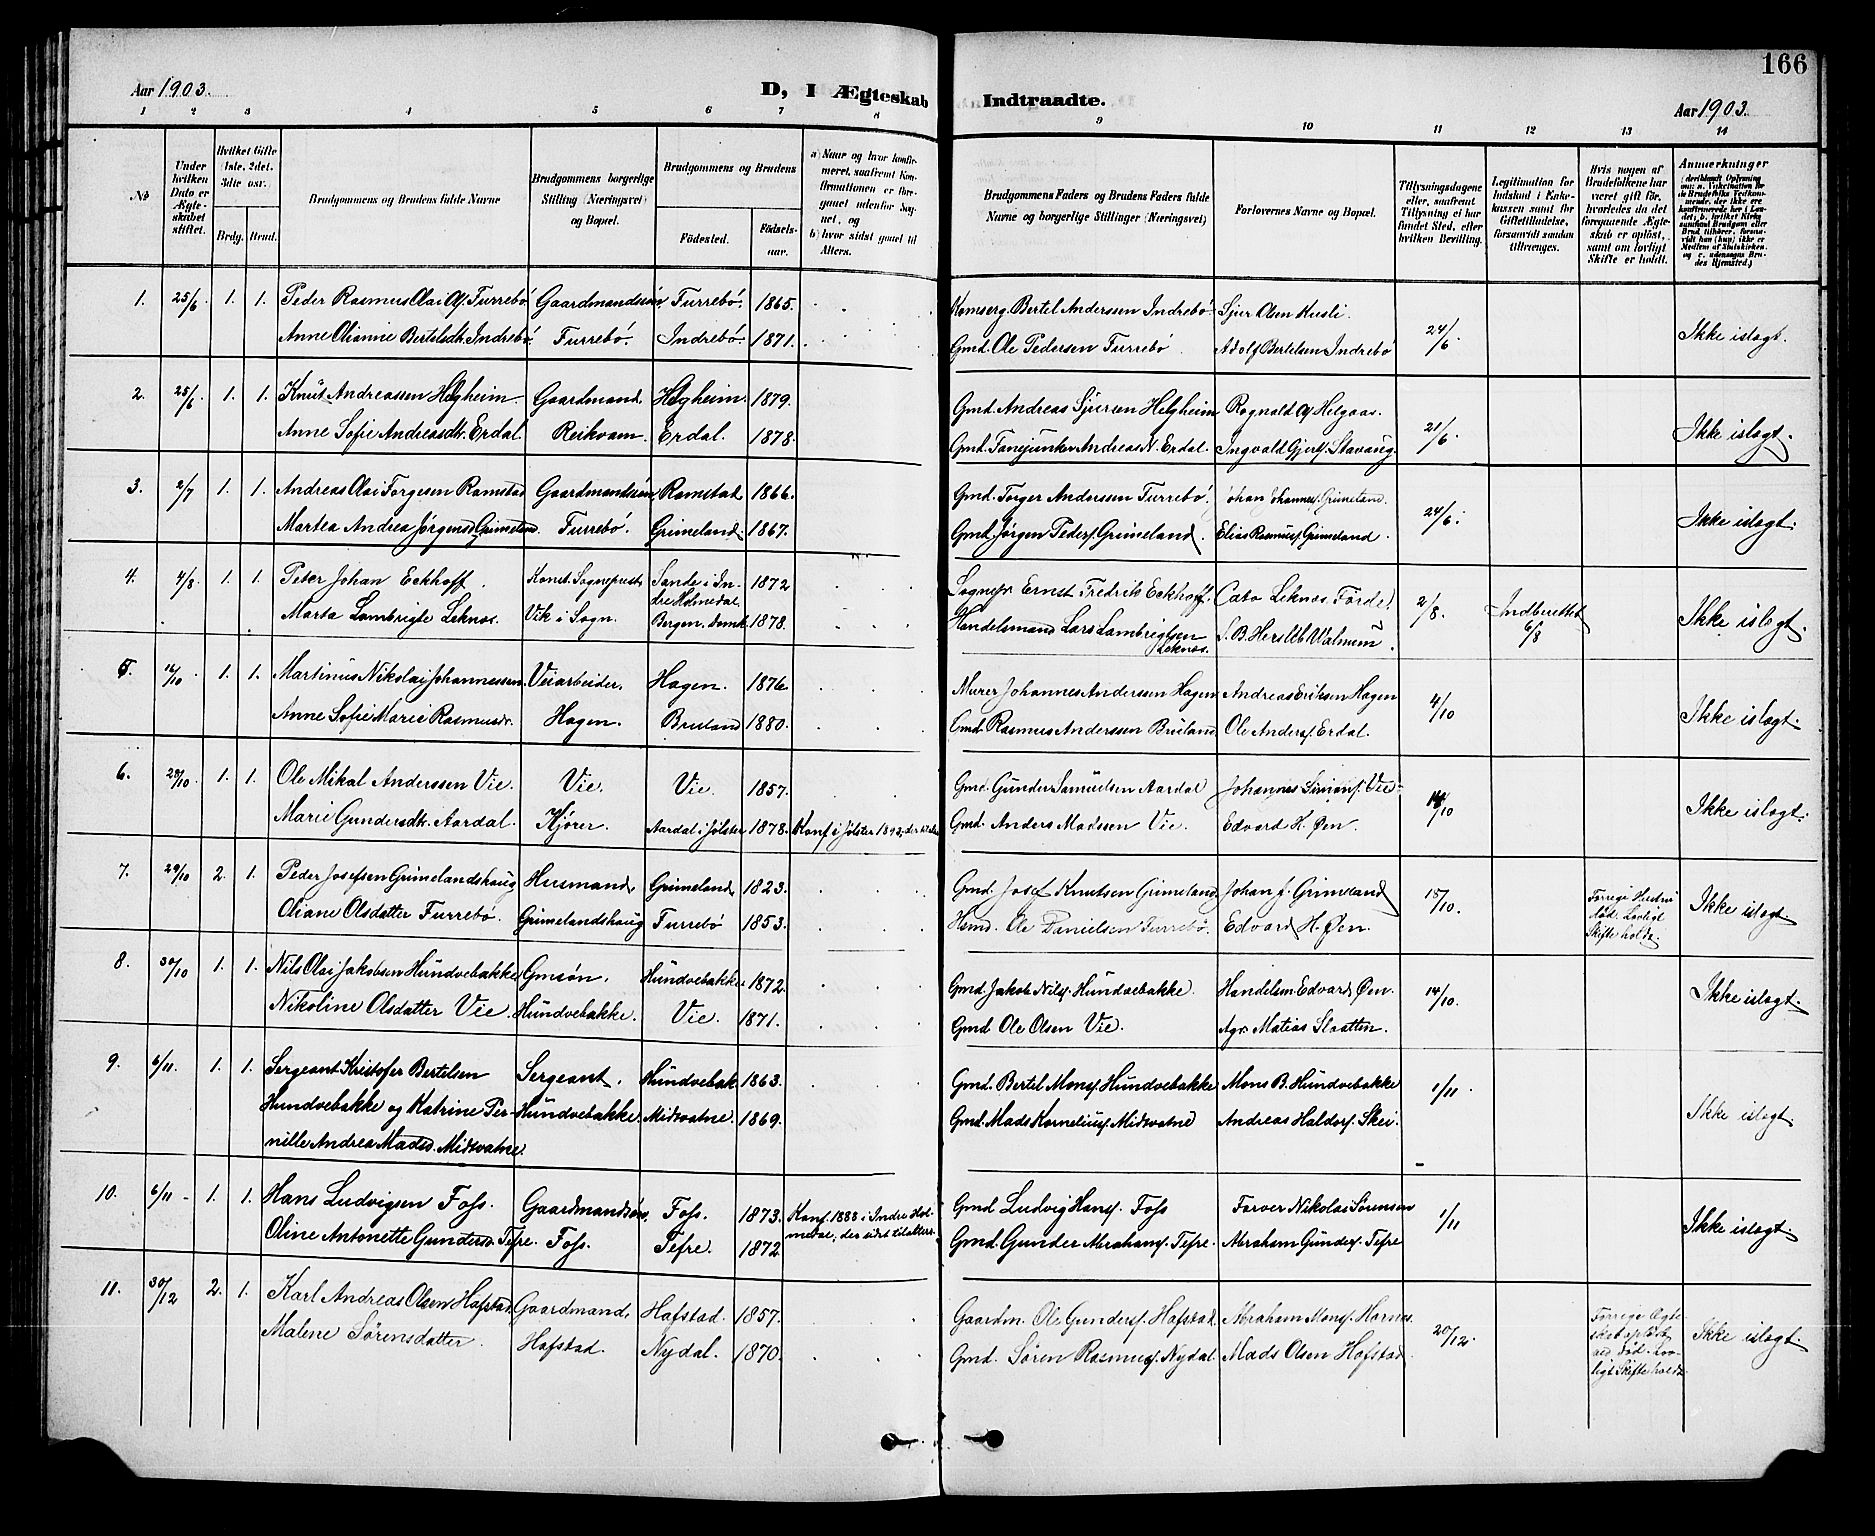 166
Aar 1903.
D, I Ægteskab Indtraadte.
Aar 1903.
1 2 3 4 5 6 7 8 9 10 11 12 13 14
No
Under hvilken Dato er Ægteskabet stiftet.
Hvilket Gifte (1ste, 2det, 3die osv.
Brdg. Brud.
Brudgommens og Brudens fulde Navne
Brudgommens borgerlige Stilling (Næringsvei) og Bopæl.
Brudgommens og Brudens
Fødested.
Fødselsaar.
a) Naar og hvor konfirmeret, saafremt Konfirmationen er foregaaet udenfor Sognet, og
b) hvor sidst gaaet til Alters.
Brudgommens Faders og Brudens Faders fulde Navne og borgerlige Stillinger (Næringsvei)
Forlovernes Navne og Bopæl.
Tillysningsdagene eller, saafremt Tillysning ei har fundet Sted, efter hvilken Bevilling.
Legitimation for Indskud i Enkekassen samt for Giftetilladelse, forsaavidt saadan tiltrænges.
Hvis nogen af Brudefolkene har været gift før, hvorledes da det foregaaende Ægteskab er opløst, samt om lovligt Skifte er holdt.
Anmerkninger
1. 25/6. 1. 1. Peder Rasmus Olai Ols. Furrebø Gaardmandssøn Furrebø. 1865. Komserg. Bertel Anderssen Indrebø Sjur Olsen Kusli. 24/6 Ikke islægt.
Anne Olianne Bertelsdtr. Indrebø. Furrebø. Indrebø. 1871. Gmd. Ole Pedersen Furrebø. Adolf Bertelsen Indrebø
2. 25/6 1. 1. Knut Andreassen Helgheim Gaardmand Helgheim. 1879. Gmd. Andreas Sjursen Helgheim Rognald Helgaas. 21/6. Ikke islægt.
Anne Sofie Andreasdtr. Erdal. Reikvam. Erdal. 1878. Gmd. Fanejunker Andreas N. Erdal. Ingvald Gjerts. Stavang.
3. 2/7 1. 1. Andreas Olai Torgersen Ramstad Gaardmandssøn Ramstad 1866. Gmd. Torger Anderssen Furrebø. Johan Johannes. Grimeland. 24/6. Ikke islægt.
Martea Andrea Jørgensd. Grimeland. Furrebø. Grimeland. 1867. Gmd. Jørgen Peders. Grimeland. Elias Rasmus. Grimeland.
4. 4/8 1. 1. Peter Johan Eckhoff. Konst. Sogneprest Sande i Indre Holmedal 1872 Sognepr. Ernst Fredrik Eckhoff. Cato Leknes. Førde. 2/8. Indberettet 6/8 Ikke islægt.
Marta Lambrigte Leknes. Vik i Sogn. Bergen. Domk. 1878. Handelsmand Lars Lambrigtsen Leknes. S. B. Hersleb Walnum.
5. 16/10 1. 1. Martinus Nikolai Johannessen. Veiarbeider. Hagen. 1876. Murer Johannes Anderssen Hagen. Andreas Eriksen Hagen 4/10 Ikke islægt.
Anne Sofie Marie Rasmusdr. Hagen. Bruland 1880. Gmd. Rasmus Anderssen Bruland Ole Anders. Erdal.
6. 28/10. 1. 1. Ole Mikal Anderssen Vie. Vie. Vie. 1857. Gmd. Gunder Samuelsen Aardal Johannes Simons. Vie 14/10 Ikke islægt.
Marie Gundersdtr. Aardal. Kjører. Aardal i Jølster 1878. Konf. i Jølster 1892. Gmd. Anders Madssen Vie. Edvard H. Øen.
7. 29/10 2. 1. Peder Josefsen Grimelandshaug Husmand Grimeland 1823. Gmd. Josef Knutsen Grimeland. Johan J. Grimeland 15/10. Forrige Hustru død. Lovligt Skifte holdt. Ikke islægt.
Oliane Olsdatter Furrebø. Grimelandshaug Furrebø 1853. Hsmd. Ole Danielsen Furrebø. Edvard H. Øen.
8. 30/10 1. 1. Nils Olai Jakobsen Hundvebakke Gmsøn. Hundvebakke. 1872. Gmd. Jakob Nils. Hundvebakke. Handelsm. Edvard Øen. 14/10. Ikke islægt.
Nikoline Olsdatter Vie. Hundvebakke. Vie. 1871. Gmd. Ole Olsen Vie. Agr. Matias Slaatten.
9. 6/11. 1. 1. Sergeant Kristofer Bertelsen Sergeant. Hundvebak. 1863. Gmd. Bertel Mons. Hundvebakke Mons B. Hundvebakke 1/11. Ikke islægt.
Hundvebakke og Katrine Per- Hundvebakke. Midtvatne. 1869. Gmd. Mads Kornelius. Midtvatne Andreas Haldors. Skei.
nille Andrea Madsd. Midtvatne.
10. 6/11 - 1. 1. Hans Ludvigsen Foss. Gaardmandssøn. Foss. 1873. Konf. 1888 i Indre Holmedal, der sidst til alters. Gmd. Ludvig Hans. Foss Farver Nikolai Sørensen 1/11 Ikke islægt.
Oline Antonette Gundersd. Tefre. Foss. Tefre. 1872 Gmd. Gunder Abrahams. Tefre. Abraham Gunders. Tefre
11. 30/12 2. 1. Karl Andreas Olsen Hafstad Gaardmand, Hafstad. 1857. Gaardm. Ole Gunders. Hafstad. Abraham Mons. Hornes. 20/12. Forrige Ægteskab opløst ved Død. Lovligt Skifte holdt. Ikke islægt.
Malene Sørensdatter. Hafstad. Nydal. 1870. Gmd. Søren Rasmus. Nydal. Mads Olsen Hafstad.